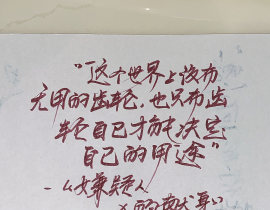 “这个世界上没有
无用的齿轮，也只有齿
轮自己才能决定
自己的用途”
-《嫌疑人
x的献身》